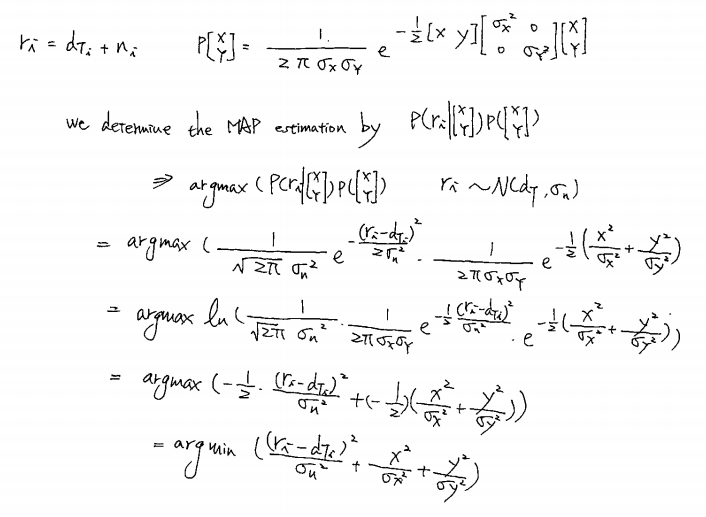 r_i = d_{T_i} + n_i   P[x y] = 1/(2πσ_xσ_Y) e^{-1/2 [x y] [σ_x² 0; 0 σ_Y²] [x; Y]}
we determine the MAP estimation by P(r_i|[x; Y])P([x; Y])
⇒ argmax (P(r_i|[x; Y])P([x; Y])   r_i ~ N(d_T, σ_n)
= argmax ( 1/(√2π σ_n²) e^{-(r_i-d_{T_i})²/(2σ_n²)} · 1/(2πσ_xσ_Y) e^{-1/2 (x²/σ_x² + y²/σ_y²)}
= argmax ln ( 1/(√2π σ_n²) · 1/(2πσ_xσ_Y) e^{-1/2 (r_i-d_{T_i})²/σ_n²} · e^{-1/2 (x²/σ_x² + y²/σ_y²)})
= argmax (-1/2 · (r_i-d_{T_i})²/σ_n² + (-1/2)(x²/σ_x² + y²/σ_y²))
= argmin ((r_i-d_{T_i})²/σ_n² + x²/σ_x² + y²/σ_y²)